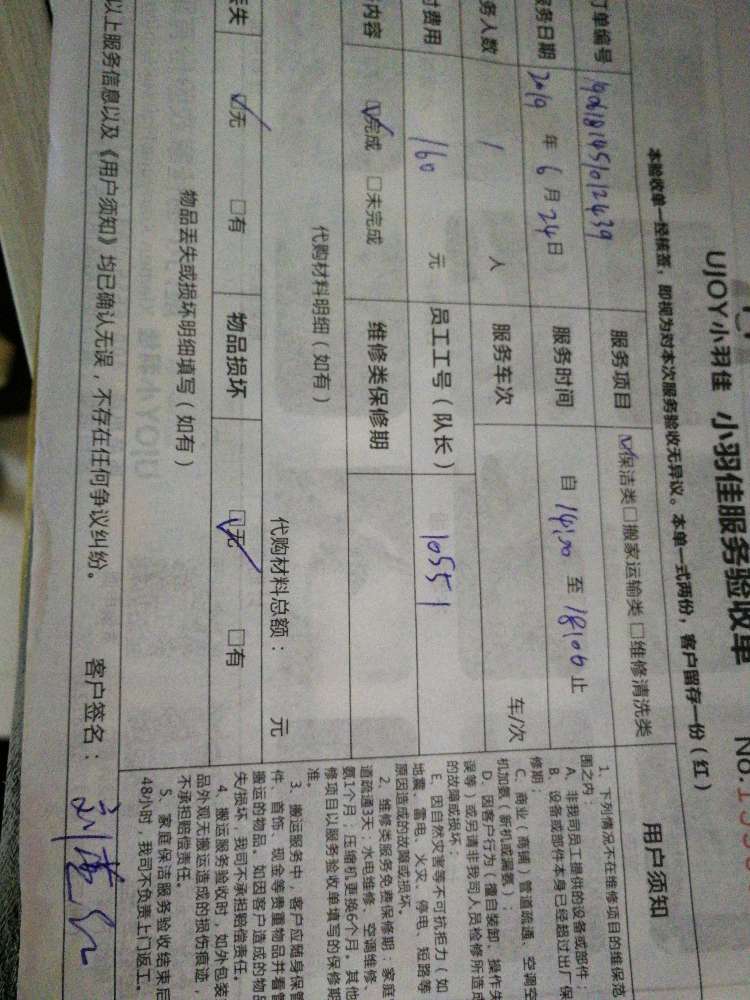 UJOY小羽佳 小羽佳服务验收单 No.
本验收单一经核签，即视为对本次服务验收无异议。本单一式两份，客户留存一份（红）
订单编号 服务项目 ☑保洁类□搬家运输类□维修清洗类
服务日期 2019年6月24日 服务时间 自14:00至18:00止
务人数 1人 服务车次 车/次
付费用 160元 员工工号（队长） 10551
内容 ☑完成 □未完成 维修类保修期
代购材料明细（如有） 代购材料总额： 元
丢失 ☑无 □有 物品损坏 ☑无 □有
物品丢失或损坏明细填写（如有）
以上服务信息以及《用户须知》均已确认无误，不存在任何争议纠纷。 客户签名：
用户须知
1、下列情况不在维修项目的维保范
围之内：
A、非我司员工提供的设备或部件；
B、设备或部件本身已经超过出厂保
修期；
C、商业（商铺）管道疏通、空调空
机加氨（新机或漏氨）；
D、因客户行为（擅自装卸、操作失
误等）或另请非我司人员检修所造成
的故障或损坏；
E、因自然灾害等不可抗拒力（如
地震、雷电、火灾、停电、短路等
原因造成的故障或损坏。
2、维修类服务免费保修期：家庭
道疏通3天，水电维修、空调维修、
氨1个月；压缩机更换6个月。其他
修项目以服务验收单填写的保修期
准。
3、搬运服务中，客户应随身保管
件、首饰、现金等贵重物品并看管
搬运的物品。如因客户造成的物品
失/损坏，我司不承担赔偿责任。
4、搬运服务验收时，如外包装
品外观无搬运造成的损伤痕迹，
不承担赔偿责任。
5、家庭保洁服务验收结束后
48小时，我司不负责上门返工。